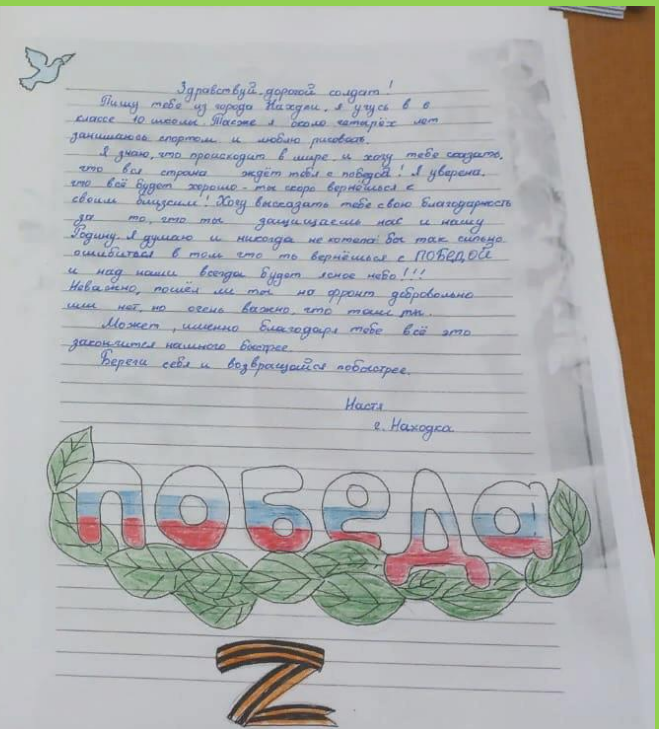 Здравствуй, дорогой солдат!
Пишу тебе из города Находки. Я учусь в 6
классе 10 школы. Также я около четырёх лет
занимаюсь спортом и люблю рисовать.
Я знаю, что происходит в мире и хочу тебе сказать,
что вся страна ждёт тебя с победой! Я уверена,
что всё будет хорошо - ты скоро вернёшься к
своим близким! Хочу высказать тебе свою благодарность
за то, что ты защищаешь нас и нашу
Родину. Я думаю и никогда не хотела бы так сильно
ошибиться в том что ты вернёшься с ПОБЕДОЙ
и над нами всегда будет ясное небо!!!
Неважно, пошёл ли ты на фронт добровольно
или нет, но очень важно, что ты.
Может, именно благодаря тебе всё это
закончится намного быстрее.
Береги себя и возвращайся побыстрее.
Настя
г. Находка
победа
Z